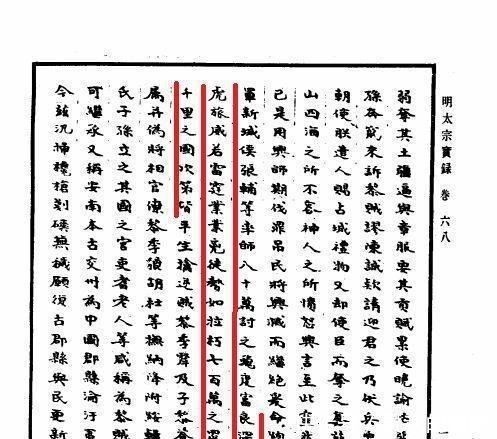 明太宗實錄 卷 六八
弱奪其土疆逼與章服要其貢賦累使曉諭
孫為 來訴黎賊謬陳誠欵請迎君之乃伏兵
朝使朕遣人賜占城禮物又却使臣而奪之
山四海之所不容神人之所憤怒興言至此
已是用興師期伐罪吊民將興滅而繼絕爰命
軍新城侯張輔等率師八十萬討之飛度富良深
虎旅威若雷霆業業兇徒勢如拉朽七百萬之
千里之國次第皆平生擒逆賊黎季犛及子黎
屬并偽將相官僚黎季貔胡杜等撫納降附綏輯
氏子孫立之其國之官吏耆老人等咸稱為黎賊
可繼承又稱安南本古交州為中國郡縣淪汙
今茲汛掃攙槍剗磢蕪穢願復古郡縣與民更新